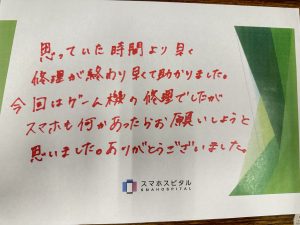 思っていた時間より早く
修理が終わり早くて助かりました。
今回はゲーム機の修理でしたが
スマホも何かあったらお願いしようと
思いました。ありがとうございました。
スマホスピタル
SMAHOSPITAL